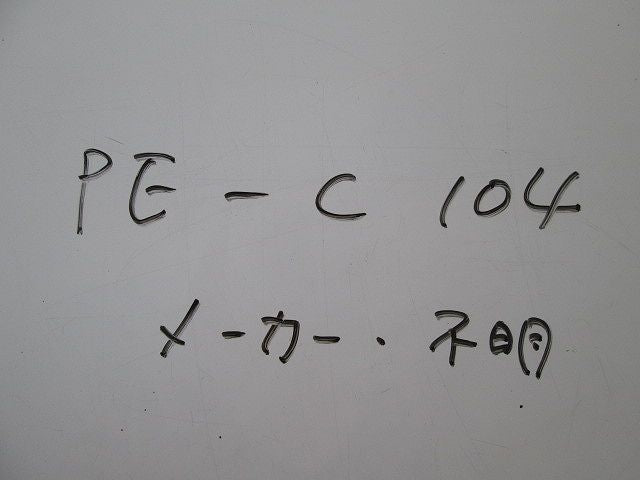 PE-C 104
メーカー・不明